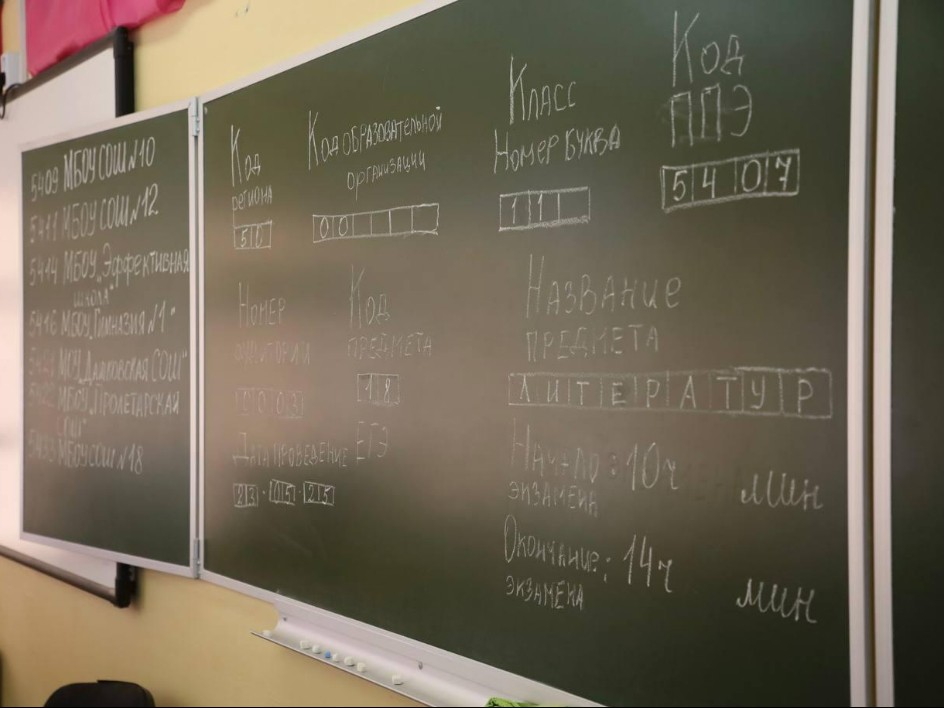 5409 МБОУ СОШ №10
5411 МБОУ СОШ №12
5414 МБОУ „Эффективная
школа"
5416 МБОУ „Гимназия №1"
МКОУ СОШ"
МБОУ „Пролетарская
СОШ"
5433 МБОУ СОШ №18
Код
региона
50
Код образовательной
организации
00
Класс
Номер Буква
11
Код
ППЭ
5407
Номер
аудитории
Код
предмета
18
Название
предмета
ЛИТЕРАТУР
Дата проведение ЕГЭ
23.05.25
Начало: 10ч мин
экзамена
Окончание: 14ч мин
экзамена